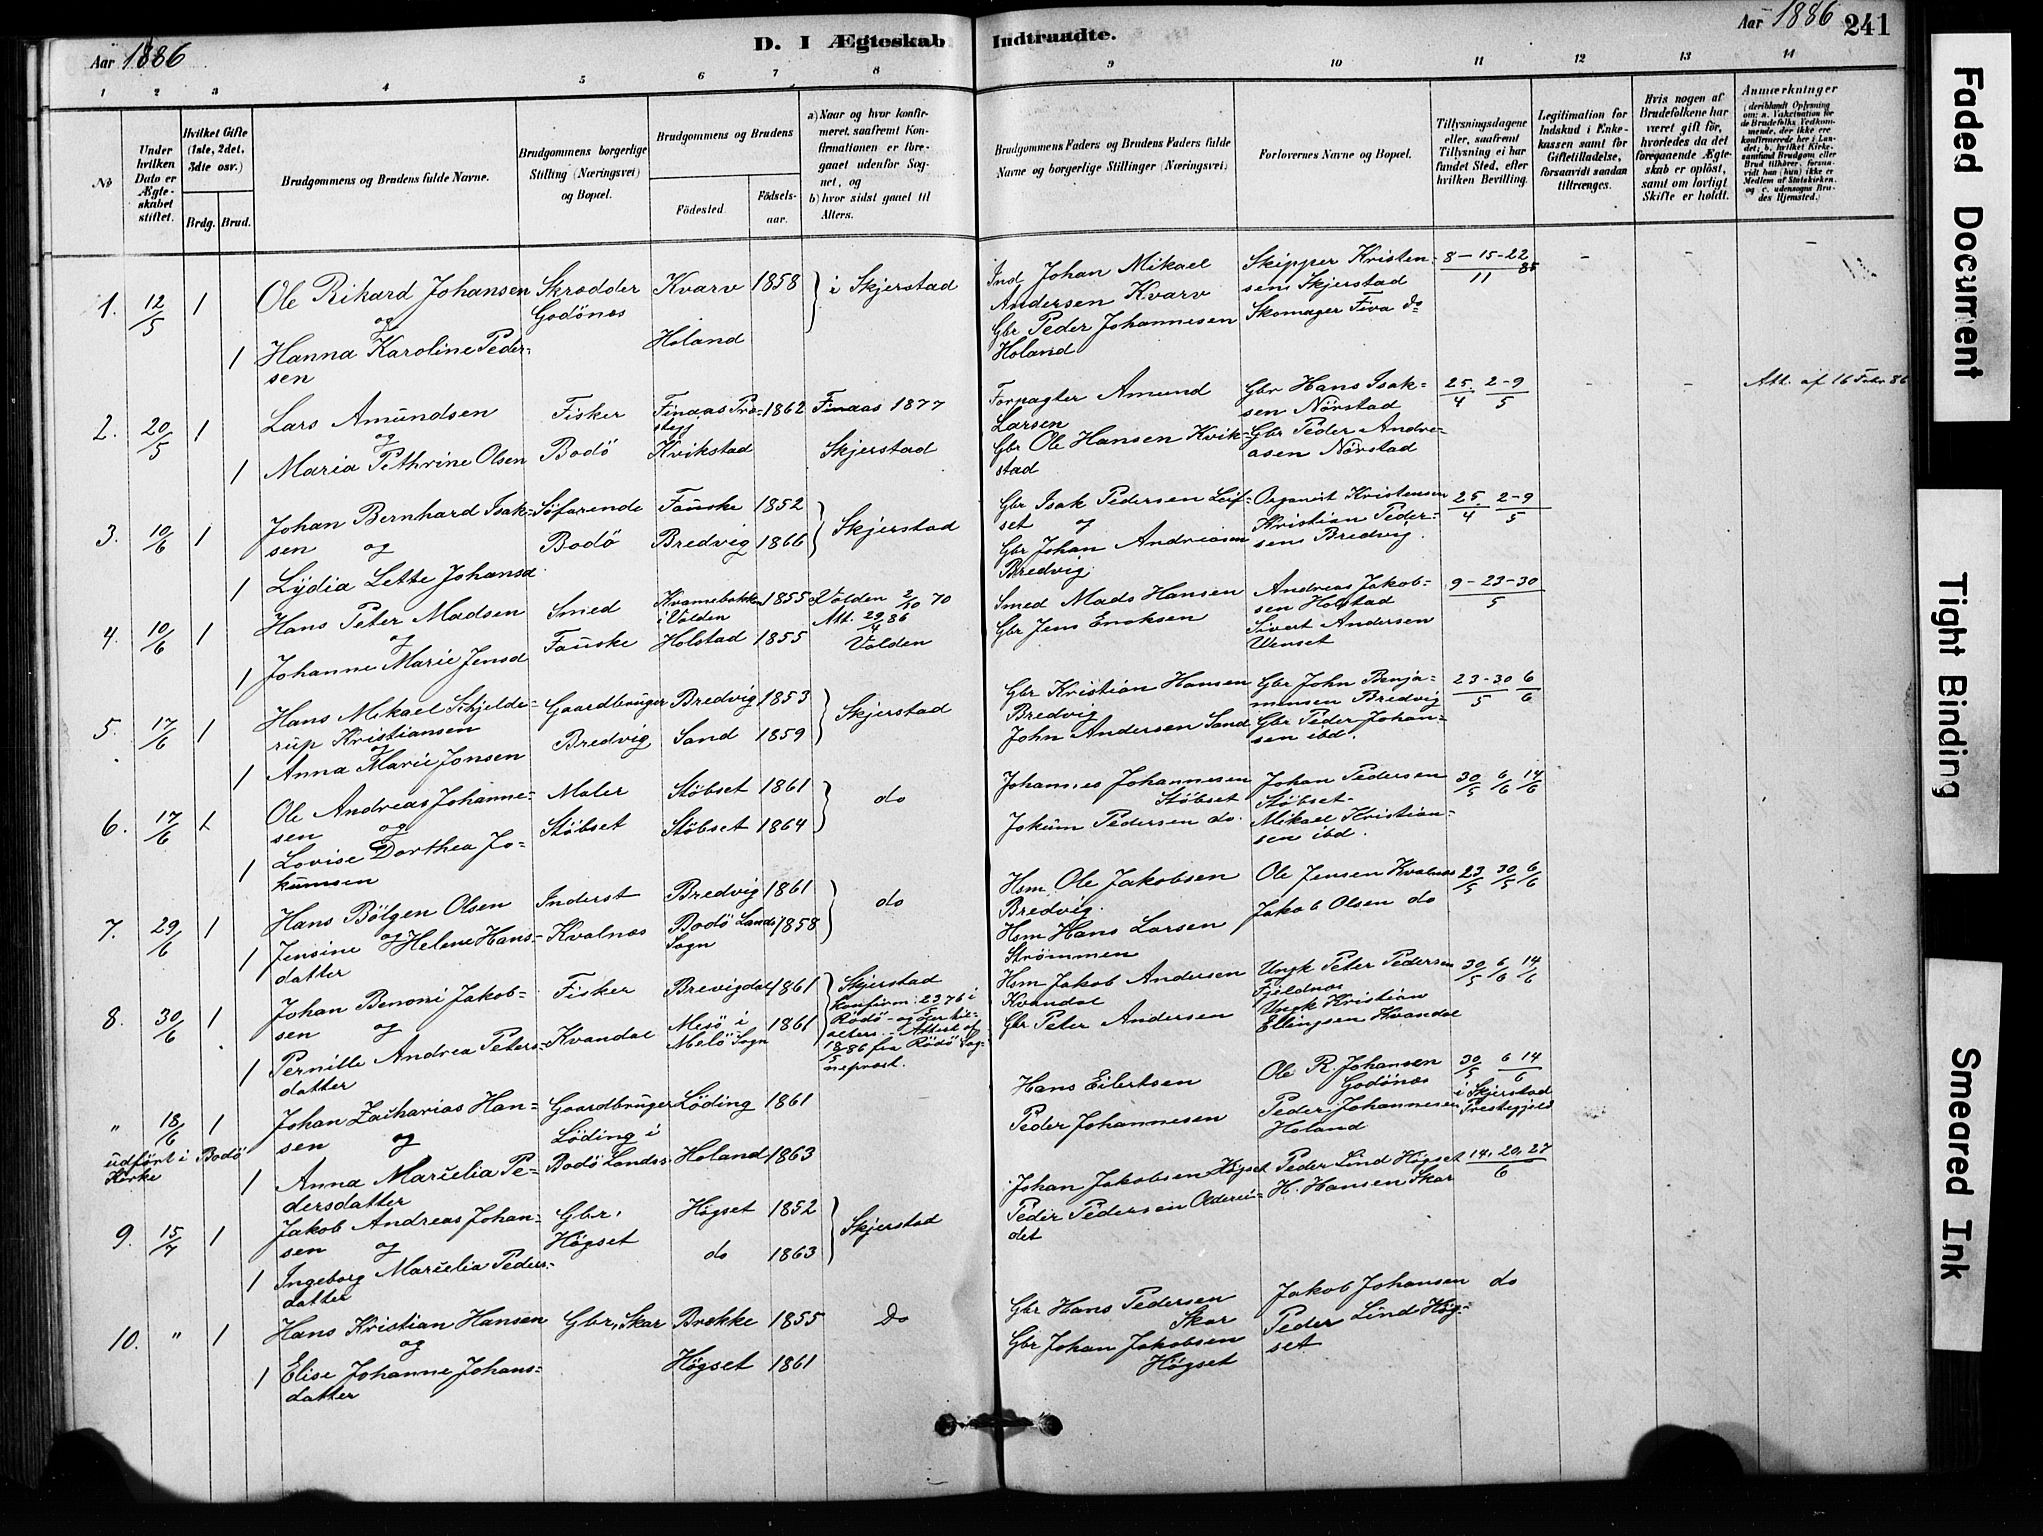 Aar 1886
D. I Ægteskab Indtraadte.
Aar 1886 241
1 2 3 4 5 6 7 8 9 10 11 12 13 14
No
Under hvilken Dato er Ægteskabet stiftet.
Hvilket Gifte (1ste, 2det, 3die osv.)
Brdg. Brud.
Brudgommens og Brudens fulde Navne.
Brudgommens borgerlige Stilling (Næringsvei) og Bopæl.
Brudgommens og Brudens
Fødested. Fødselsaar.
a) Naar og hvor konfirmeret, saafremt Konfirmationen er foregaaet udenfor Sognet, og
b) hvor sidst gaaet til Alters.
Brudgommens Faders og Brudens Faders fulde Navne og borgerlige Stillinger (Næringsvei)
Forlovernes Navne og Bopæl.
Tillysningsdagene eller, saafremt Tillysning ei har fundet Sted, efter hvilken Bevilling.
Legitimation for Indskud i Enkekassen samt for Giftetilladelse, forsaavidt saadan tiltrænges.
Hvis nogen af Brudefolkene har været gift før, hvorledes da det foregaaende Ægteskab er opløst, samt om lovligt Skifte er holdt.
Anmærkninger
(deriblandt Oplysning om: a. Vakcination for de Brudefolks Vedkommende, der ikke ere konfirmerede her i Landet; b. hvilket Kirkesamfund Brudgom eller Brud tilhører, forsaavidt han (hun) ikke er Medlem af Statskirken, og c. udensogns Brudes Hjemsted.)
1. 12/5 1 Ole Rikard Johansen Skrædder Kvarv 1858 i Skjerstad Ind Johan Mikael Skipper Kristen- 8-15-22/11 85 - - -
og Godönes Andersen Kvarv sens Skjerstad
1 Hanna Karoline Peder- Holand Gbr Peder Johannesen Skomager Fiva do
sen Holand
2. 20/5 1 Lars Amundsen Fisker Finaas Præ- 1862 Finaas 1877 Forpagter Amund Gbr Hans Isak- 25/4 2-9/5 - - Att. af 16 Febr 86
og stegj Larsen sen Nörstad
1 Maria Pethrine Olsen Bodö Kvikstad Skjerstad Gbr Ole Hansen Kvik- Gbr Peder Andre-
stad asen Nörstad
3. 10/6 1 Johan Bernhard Isak- Söfarende Fauske 1852 Skjerstad Gbr Isak Pedersen Leif- Organist Kristensen 25/4 2-9/5
sen og Bodö Bredvig 1866 set og Kristian Peder-
1 Lydia Lette Johansd Gbr Johan Andreasen sens Bredvig.
Bredvig
4. 10/6 1 Hans Peter Madsen Smed i Volden 1855 Volden 2/10 70 Smed Mads Hansen Andreas Jakob- 9-23-30/5
og Att. 29/4 86 sen Holstad
1 Johanne Marie Jensd Fauske Holstad 1855 Volden Gbr Jens Enoksen Sivert Andersen
Venset
5. 17/6 1 Hans Mikael Schjelde- Gaardbruger Bredvig 1853 Skjerstad Gbr Kristian Hansen Gbr John Benja- 23-30/5 6/6
rup Kristiansen Bredvig minsen Bredvig
og Bredvig Sand 1859 John Andersen Sand Gbr Peder Johan-
1 Anna Marie Jonsen sen ibd.
6. 17/6 1 Ole Andreas Johanne- Maler Stöbset 1861 do Johannes Johannesen Johan Pedersen 30/5 6/6 14/6
sen og Stöbset Stöbset 1864 Stöbset Stöbset
1 Lovise Dorthea Jo- Jokum Pedersen do. Mikael Kristian-
kumsen sen ibd.
7. 29/6 1 Hans Bölgen Olsen Inderst Bredvig 1861 do Hsm. Ole Jakobsen Ole Jensen Kvalnæs 23/5 30/5 6/6
og Bredvig. Jakob Olsen do
1 Jensine Helene Hans- Kvalnæs Bodö Lands 1858 Hsm Hans Larsen
datter Sogn Strömmen
8. 30/6 1 Johan Benoni Jakob- Fisker Brevigdal 1861 Skjerstad Hsm Jakob Andersen Ungk Peter Pedersen 30/5 6/6 14/6
sen og Konfirm: 2376 i Kvandal Fjeldnæs
1 Pernille Andrea Peters- Kvandal Mesö i 1861 Rödö Gbr Peter Andersen Ungk Kristian
datter Melö Sogn Attest af 18/5 86 fra Rödö Sog- Ellingsen Kvandal
nepræst.
" 18/6 1 Johan Zacharias Han- Gaardbruger Löding 1861 Hans Eilertsen Ole R. Johansen 30/5 6 14/6
sen og Löding i Godönes i Skjerstad
udfört i Bodö Kirke Bodö Lands Holand 1863 Peder Johannesen Peder Johannesen Præstegjeld
1 Anna Marcelia Pe- Holand
dersdatter
9. 15/7 1 Jakob Andreas Johan- Gbr. Högset 1852 Skjerstad Johan Jakobsen Högset Peder Lind Högset 14. 20. 27/6
sen og Högset do 1863 Peder Pedersen Oldrei- H. Hansen Skar
1 Ingeborg Marcelia Peders- det
datter
10. " 1 Hans Kristian Hansen Gbr, Skar Brekke 1855 Do Gbr Hans Pedersen Jakob Johansen do
og Skar Peder Lind Hög-
1 Elise Johanne Johans- Högset 1861 Gbr Johan Jakobsen set
datter Högset
Faded Document
Tight Binding
Smeared Ink